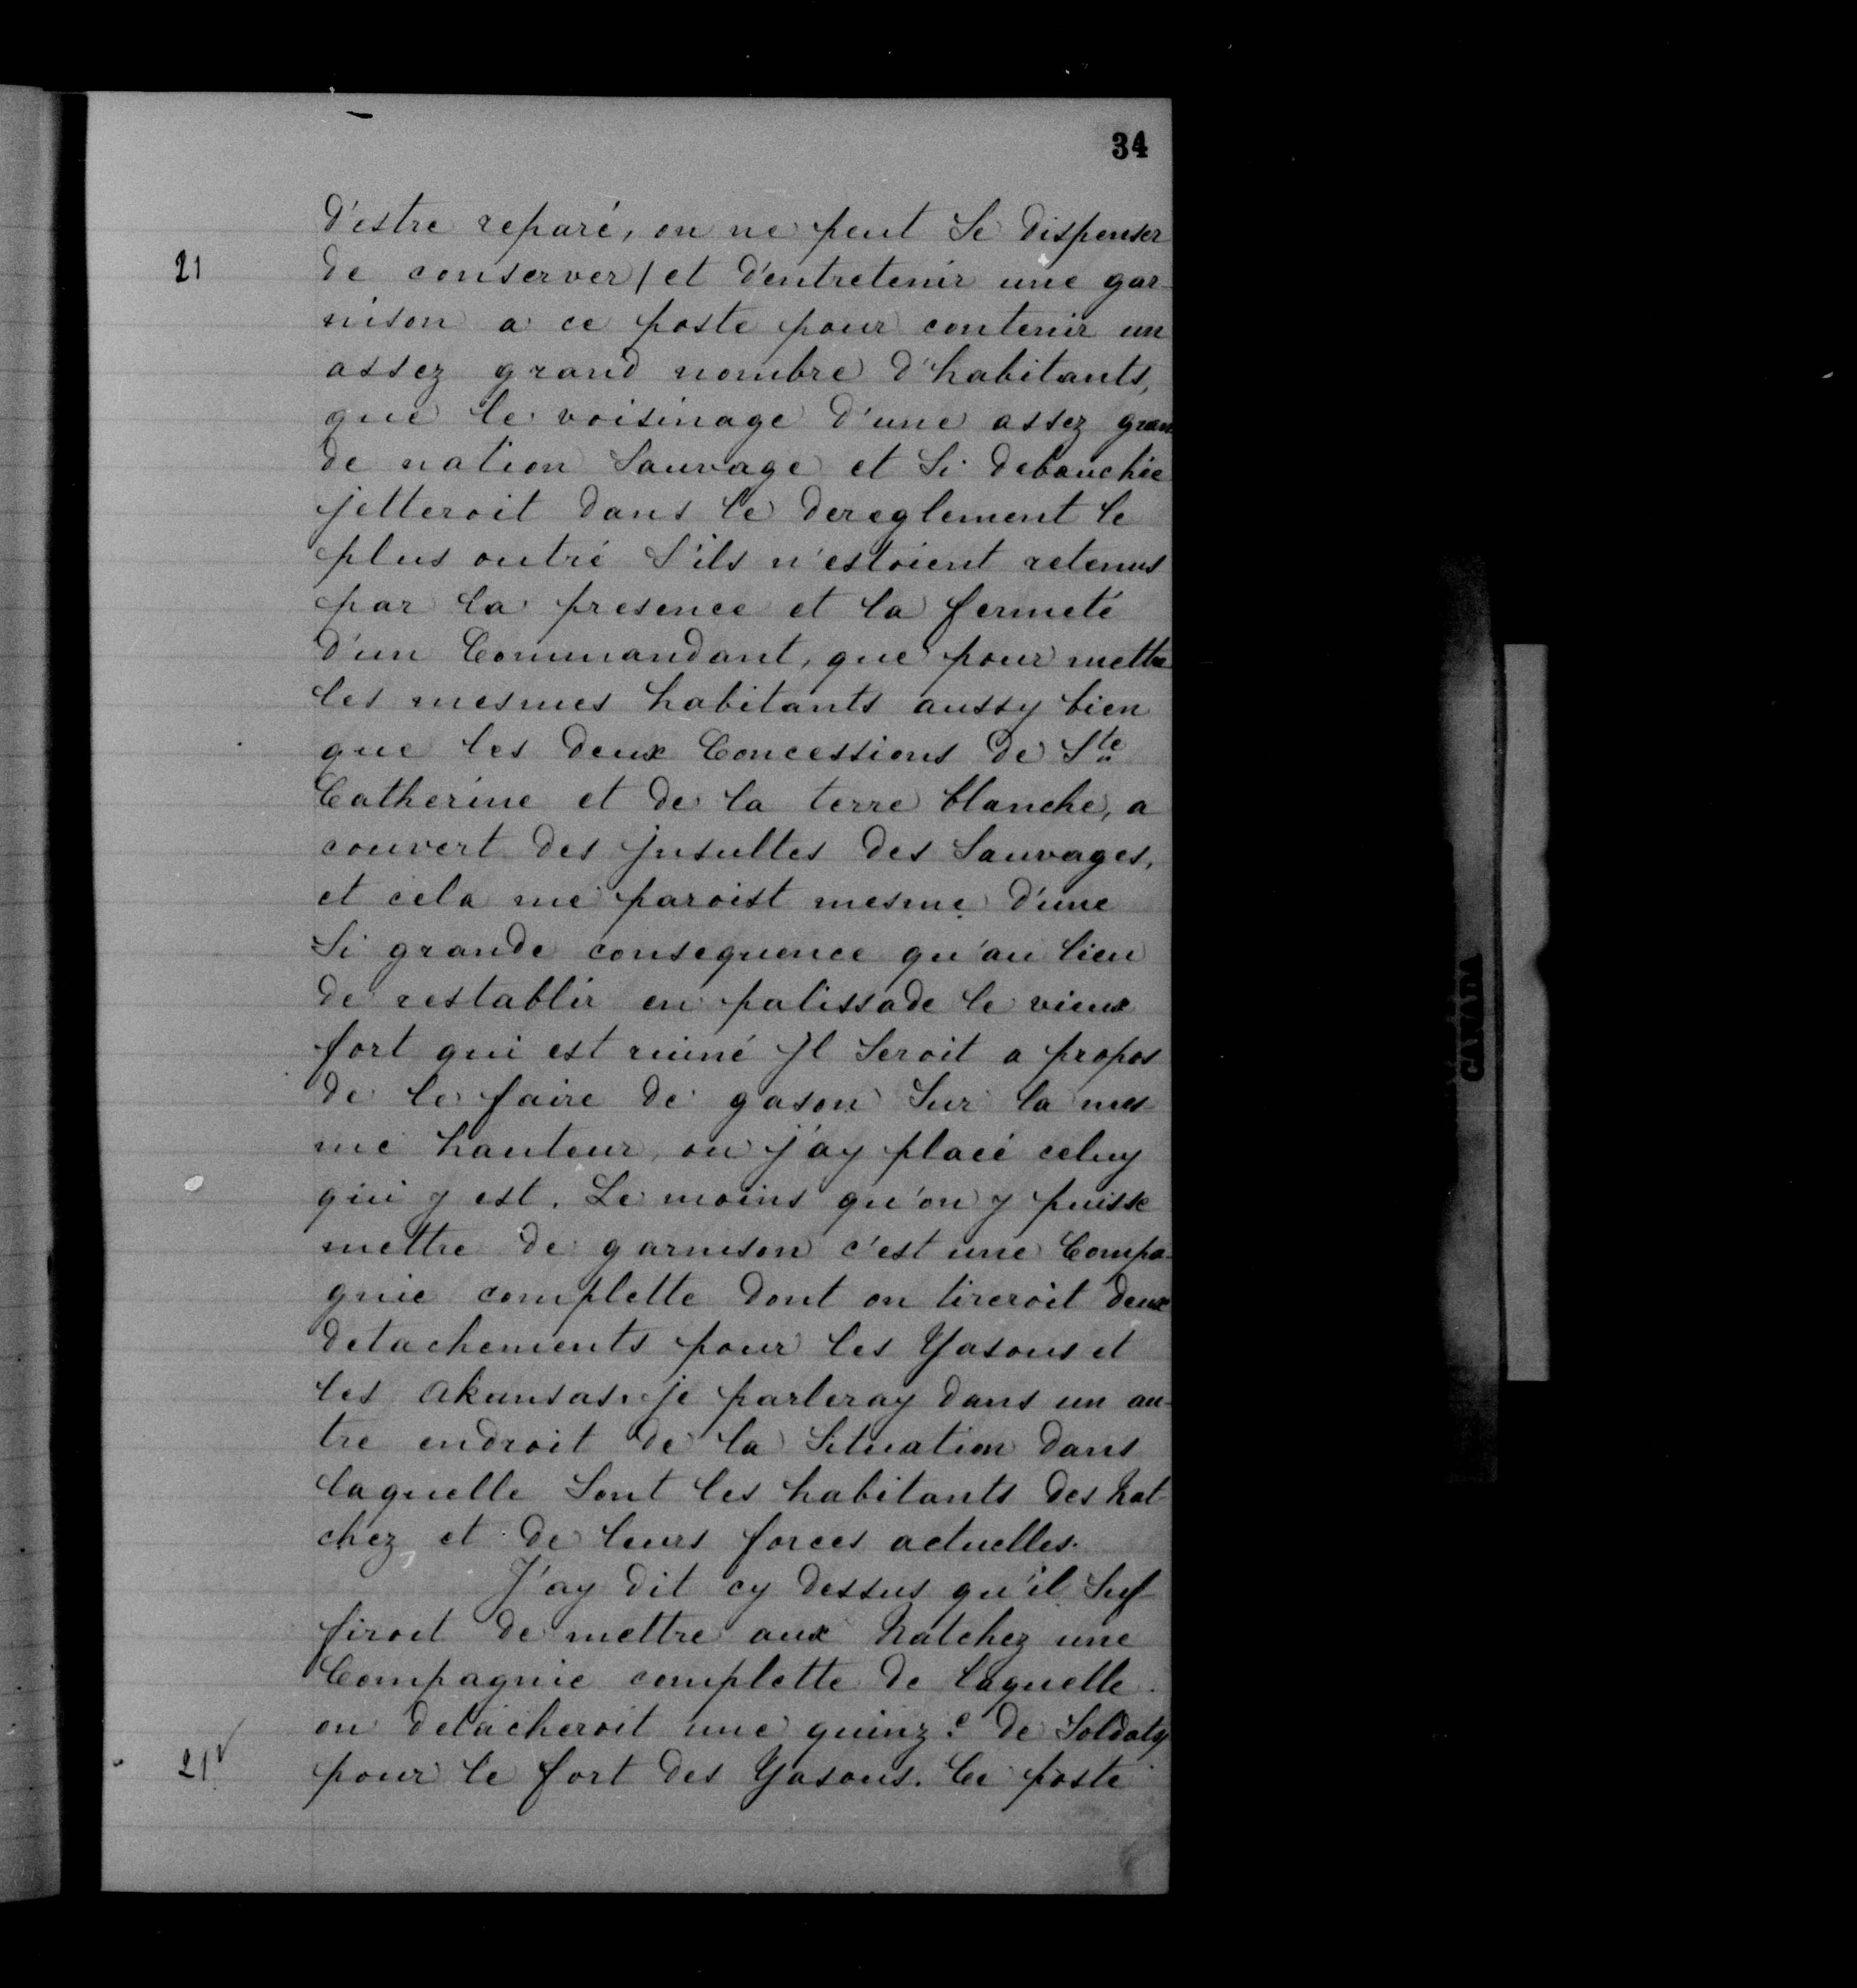 34
d'estre reparé, on ne peut Se dispenser
21
de conserver / et d'entretenir une gar-
nison a ce poste pour contenir un
assez grand nombre d'habitants,
que le voisinage d'une assez gran
de nation Sauvage et Si debauchée
jetteroit dans le dereglement le
plus outré S'ils n'estoient retenus
par la presence et la fermeté
d'un Commandant, que pour mettre
les mesmes habitants aussy bien
que les deux Concessions de Ste
Catherine et de la terre blanche, a
couvert des jnsultes des Sauvages,
et cela me paroist mesme d'une
Si grande consequence qu'au lieu
de restablir en palissade le vieux
fort qui est ruiné jl Seroit a propos
de le faire de gason Sur la mes-
me hauteur, ou j'ay placé celuy
qui y est. Le moins qu'on y puisse
mettre de garnison c'est une Compa-
gnie complette dont on tireroit deux
detachements pour les Yasous et
les Akansas. je parleray dans un au-
tre endroit de la Situation dans
laquelle Sont les habitants des Nat-
chez et de leurs forces actuelles.
J'ay dit cy dessus qu'il Suf-
firoit de mettre aux Natchez une
Compagnie complette de laquelle
on detacheroit une quinz.e de Soldats
21v
pour le fort des Yasous. Ce poste
CANADA